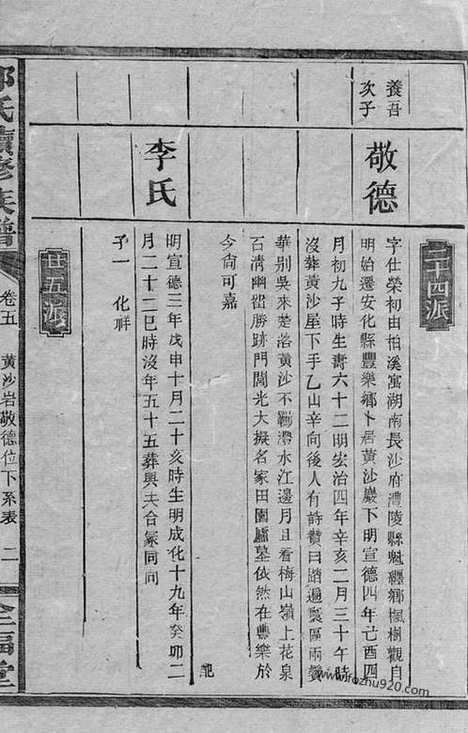 二十四派
養吾
次子
敬德
字仕榮初由柏溪寓湖南長沙府澧陵縣魁繹鄉楓樹觀自
明始遷安化縣豐樂鄉卜居黃沙巖下明宣德四年己酉四
月初九子時生壽六十二明宏治四年辛亥二月三十午時
沒葬黃沙屋下手乙山辛向後人有詩讚曰踏遍寰區兩鬢
華别吳來楚落黃沙不勸澧水江邊月且看梅山嶺上花泉
石清幽留勝跡門閭光大擬名家田園廬墓依然在豐樂於
今尙可嘉
李氏
明宣德三年戊申十月二十亥時生明成化十九年癸卯二
月二十二巳時沒年五十五葬興夫合冢同向
子一 化祥
廿五派
氏續修族譜
卷五
黃沙岩敬德位下系表
二
堂
www.fozhu920.com